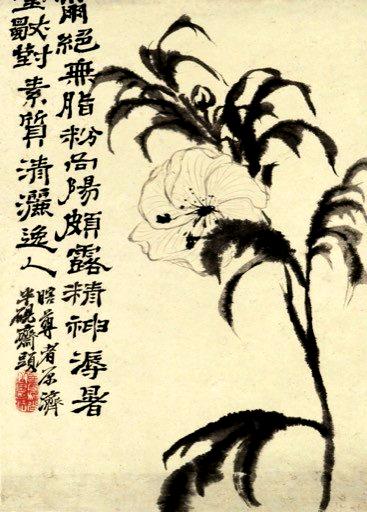 爾絕無脂粉向陽頗露精神溽暑
對素質清灑逸人
瞎尊者原濟
半硯齋頭